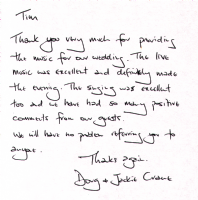 Tim
Thank you very much for providing
the music for our wedding. The live
music was excellent and definitely made
the evening. The singing was excellent
too and we have had so many positive
comments from our guests.
We will have no problem referring you to
anyone.
Thanks again.
Doug + Jackie